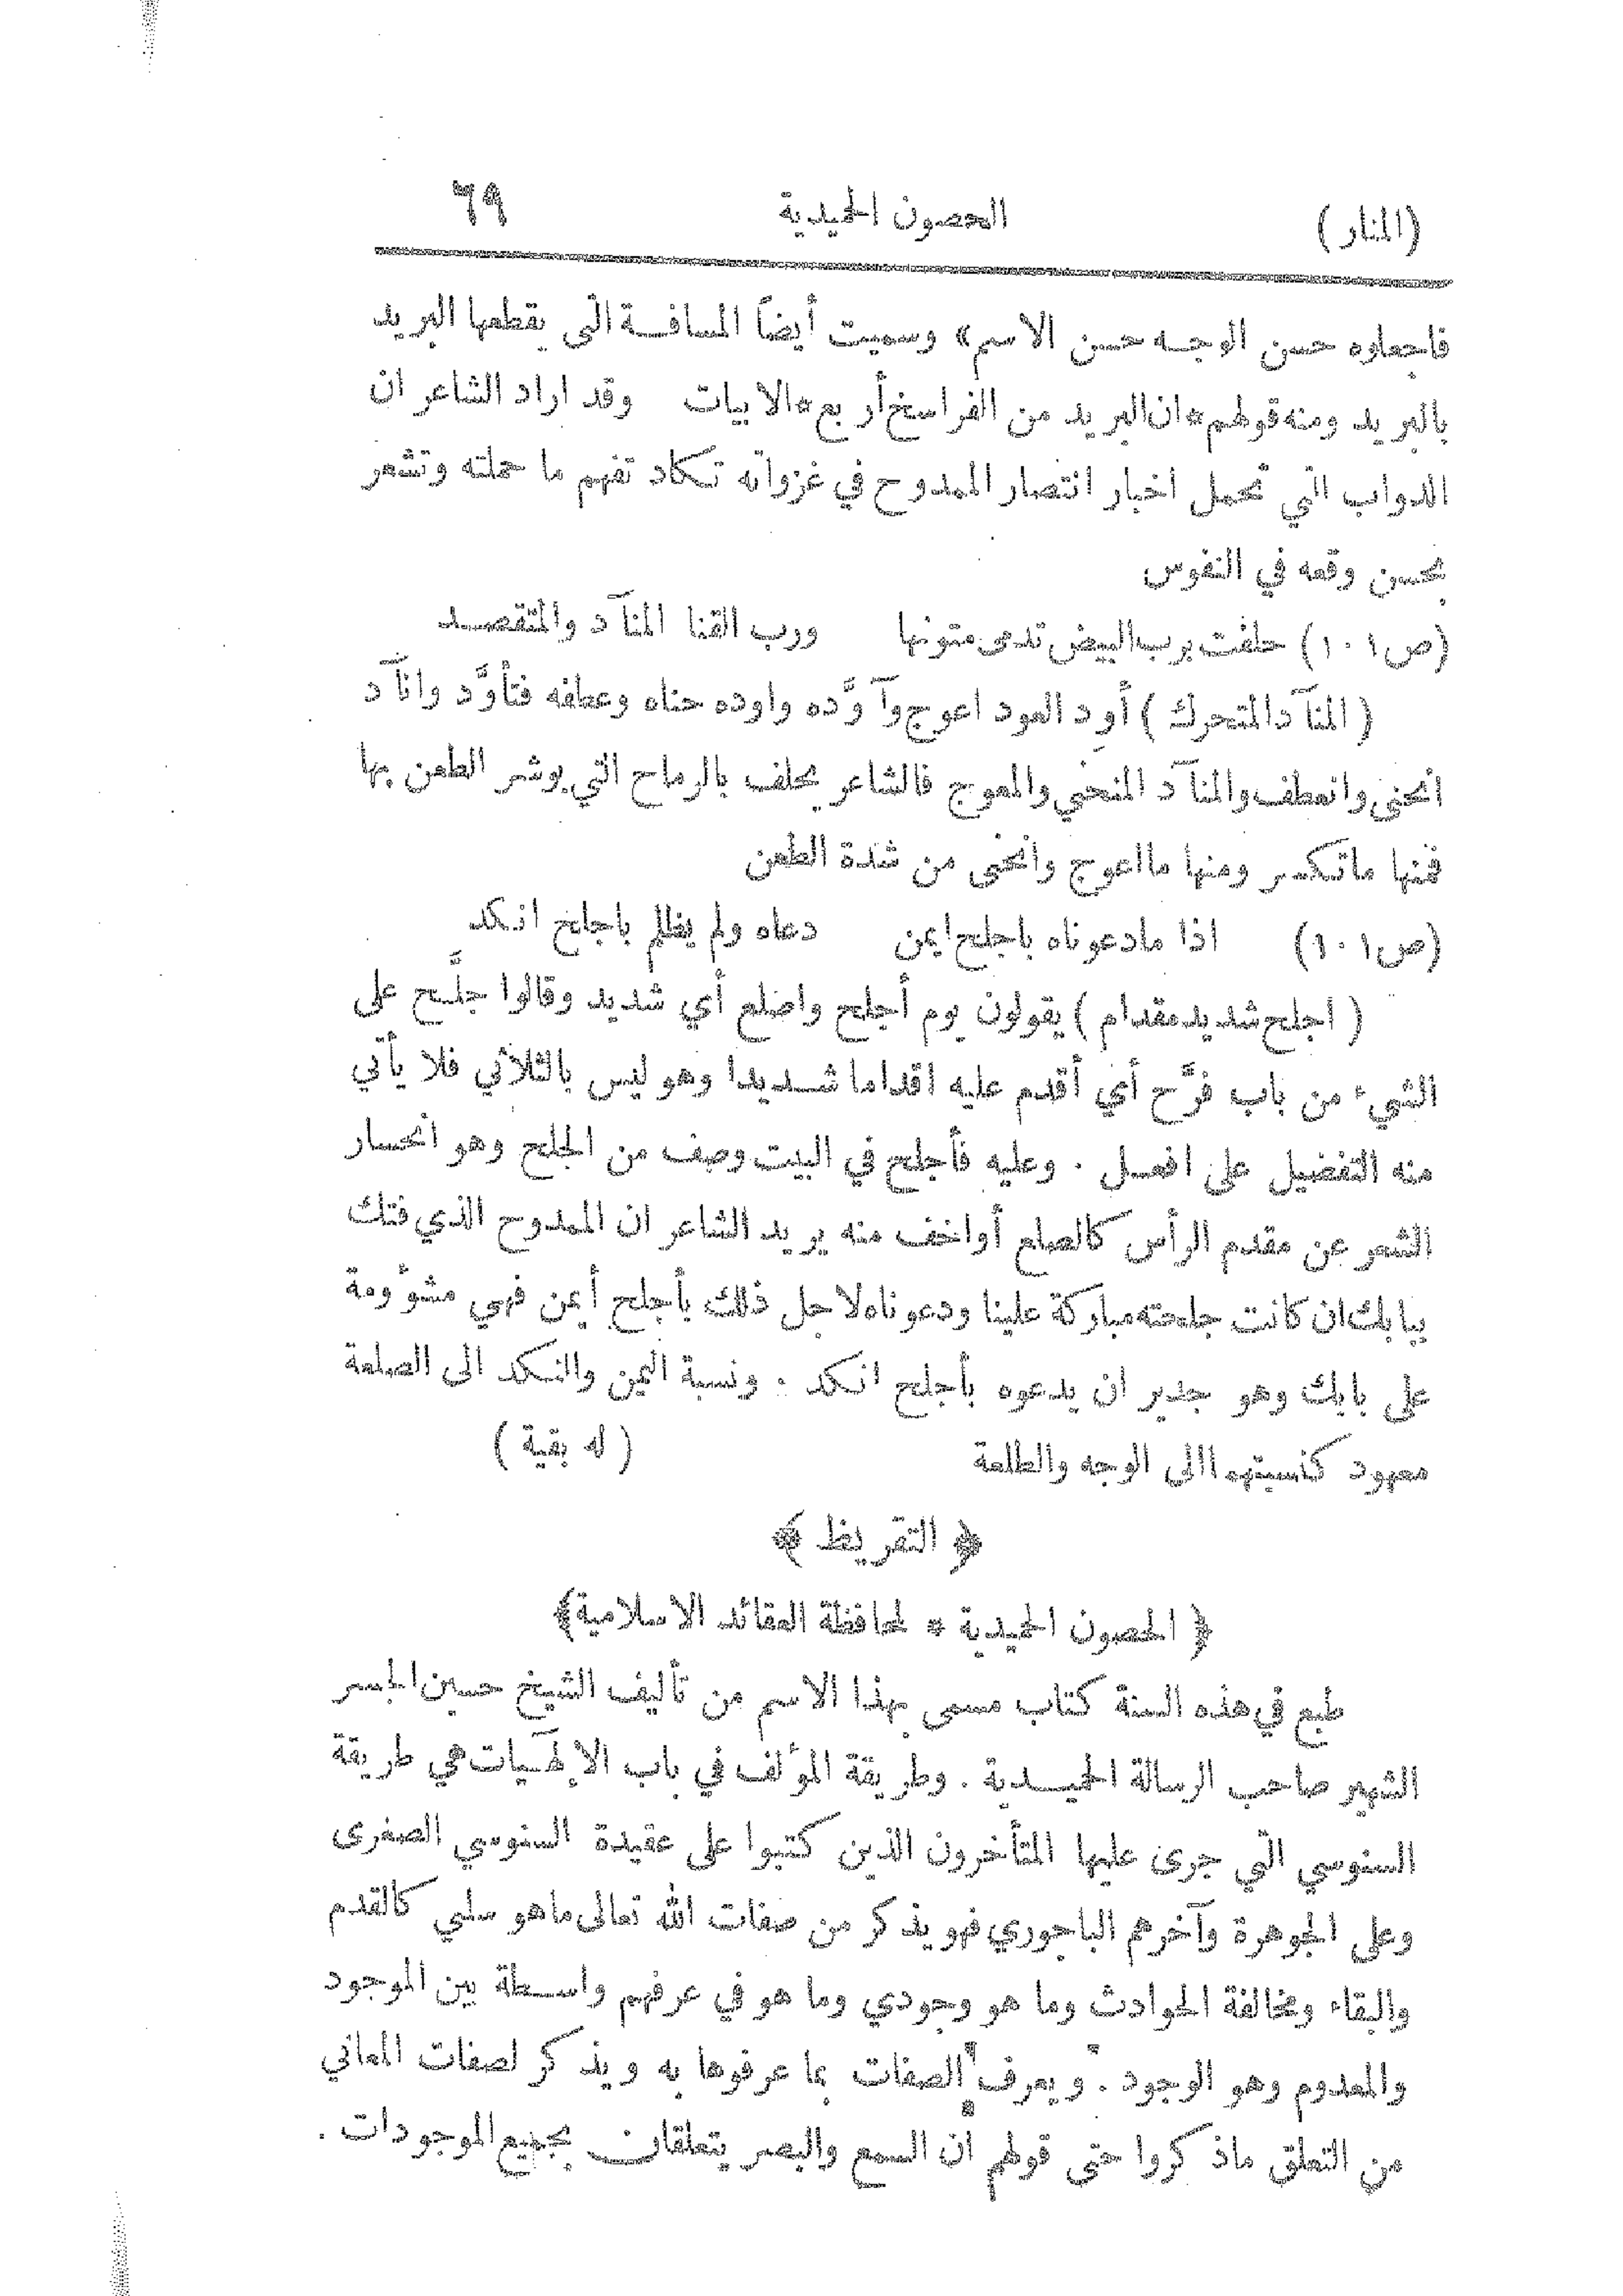 (المنار) الحصون الحميدية ٦٩
فاجعلوه حسن الوجه حسن الاسم» وسميت أيضاً المسافة التي يقطعها البريد
بالبريد ومنه قولهم * ان البريد من الفراسخ أربع * الابيات وقد اراد الشاعر ان
الدواب التي تحمل اخبار انتصار الممدوح في غزواته تكاد تفهم ما حملته وتشعر
بحسن وقعه في النفوس
(ص١٠١) حلفت برب البيض تدمى متونها ورب القنا المنآد والمتقصد
( المنآد المتحرك ) أوِد العود اعوج وآوَّده واوده حناه وعطفه فتأوَّد وانآد
انحنى وانعطف والمنآد المنحني والمعوج فالشاعر يحلف بالرماح التي بوشر الطعن بها
فمنها ماتكسر ومنها مااعوج وانحنى من شدة الطعن
(ص١٠١) اذا مادعوناه باجلح ايمن دعاه ولم يظلم باجلح انكد
( اجلح شديد مقدام ) يقولون يوم أجلح واصلع أي شديد وقالوا جلَّح على
الشيء من باب فرَّح أي أقدم عليه اقداما شديدا وهو ليس بالثلاثي فلا يأتي
منه التفضيل على افعل . وعليه فأجلح في البيت وصف من الجلح وهو انحسار
الشعر عن مقدم الرأس كالصلع أواخف منه يريد الشاعر ان الممدوح الذي فتك
ببابك ان كانت جلحته مباركة علينا ودعوناه لاجل ذلك بأجلح أيمن فهي مشؤومة
على بابك وهو جدير ان يدعوه بأجلح انكد . ونسبة اليمن والنكد الى الصلعة
معهود كنسبتهما الى الوجه والطلعة ( له بقية )
﴿ التقريظ ﴾
﴿ الحصون الحميدية * لمحافظة العقائد الاسلامية ﴾
طبع في هذه السنة كتاب مسمى بهذا الاسم من تأليف الشيخ حسين الجسر
الشهير صاحب الرسالة الحميدية . وطريقة المؤلف في باب الإلهيات هي طريقة
السنوسي التي جرى عليها المتأخرون الذين كتبوا على عقيدة السنوسي الصغرى
وعلى الجوهرة وآخرهم الباجوري فهو يذكر من صفات الله تعالى ماهو سلبي كالقدم
والبقاء ومخالفة الحوادث وما هو وجودي وما هو في عرفهم واسطة بين الموجود
والمعدوم وهو الوجود . ويعرف الصفات بما عرفوها به ويذكر لصفات المعاني
من التعلق ماذكروا حتى قولهم ان السمع والبصر يتعلقان بجميع الموجودات .